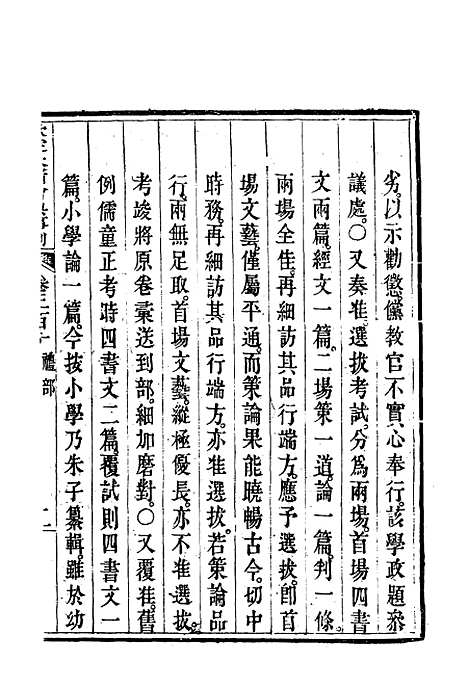 劣。以示勸懲。儻教官不實心奉行。該學政題參
議處。〇又奏准選拔考試。分爲兩場。首場四書
文兩篇。經文一篇。二場策一道。論一篇。判一條。
兩場全佳。再細訪其品行端方。應予選拔。卽首
場文藝。僅屬平通。而策論果能曉暢古今。切中
時務。再細訪其品行端方。亦准選拔。若策論品
行。兩無足取。首場文藝。縱極優長。亦不准選拔。
考竣將原卷彙送到部。細加磨對。〇又覆准。舊
例儒童正考時。四書文二篇。覆試則四書文一
篇。小學論一篇。今按小學乃朱子纂輯。雖於幼
禮部